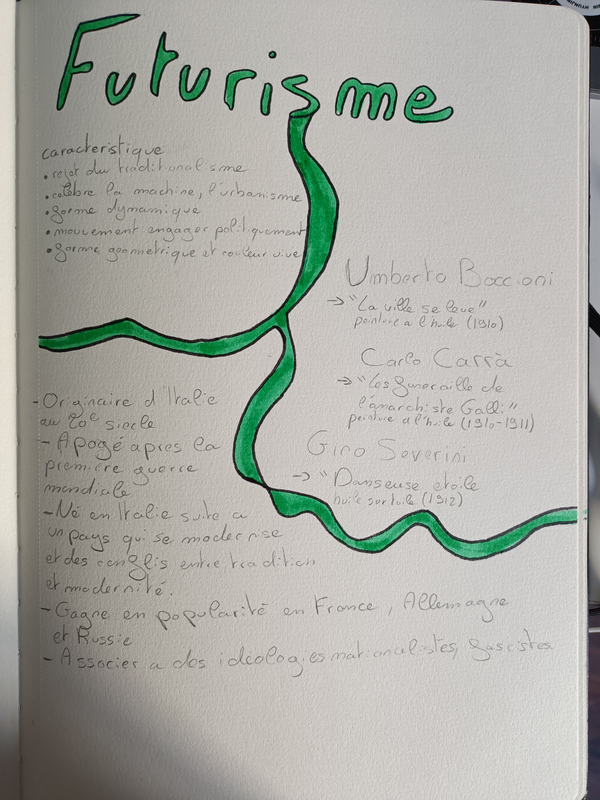 Futurisme
caracteristique
• rejet du traditionalisme
• celèbre la machine, l'urbanisme
• forme dynamique
• mouvement engager politiquement
• forme geometrique et couleur vive
Umberto Boccioni
→ "La ville se leve"
peinture a l'huile (1910)
Carlo Carrà
→ "Les funeraille de
l'anarchiste Galli"
peinture a l'huile (1910-1911)
Gino Severini
→ "Danseuse etoile
huile sur toile (1912)
- Originaire d'Italie
au 20e siecle
- Apogé apres la
première guerre
mondiale
- Né en Italie suite a
un pays qui se modernise
et des conflis entre tradition
et modernité.
- Gagne en popularité en France, Allemagne
et Russie
- Associer a des idéologies nationalistes, fascistes